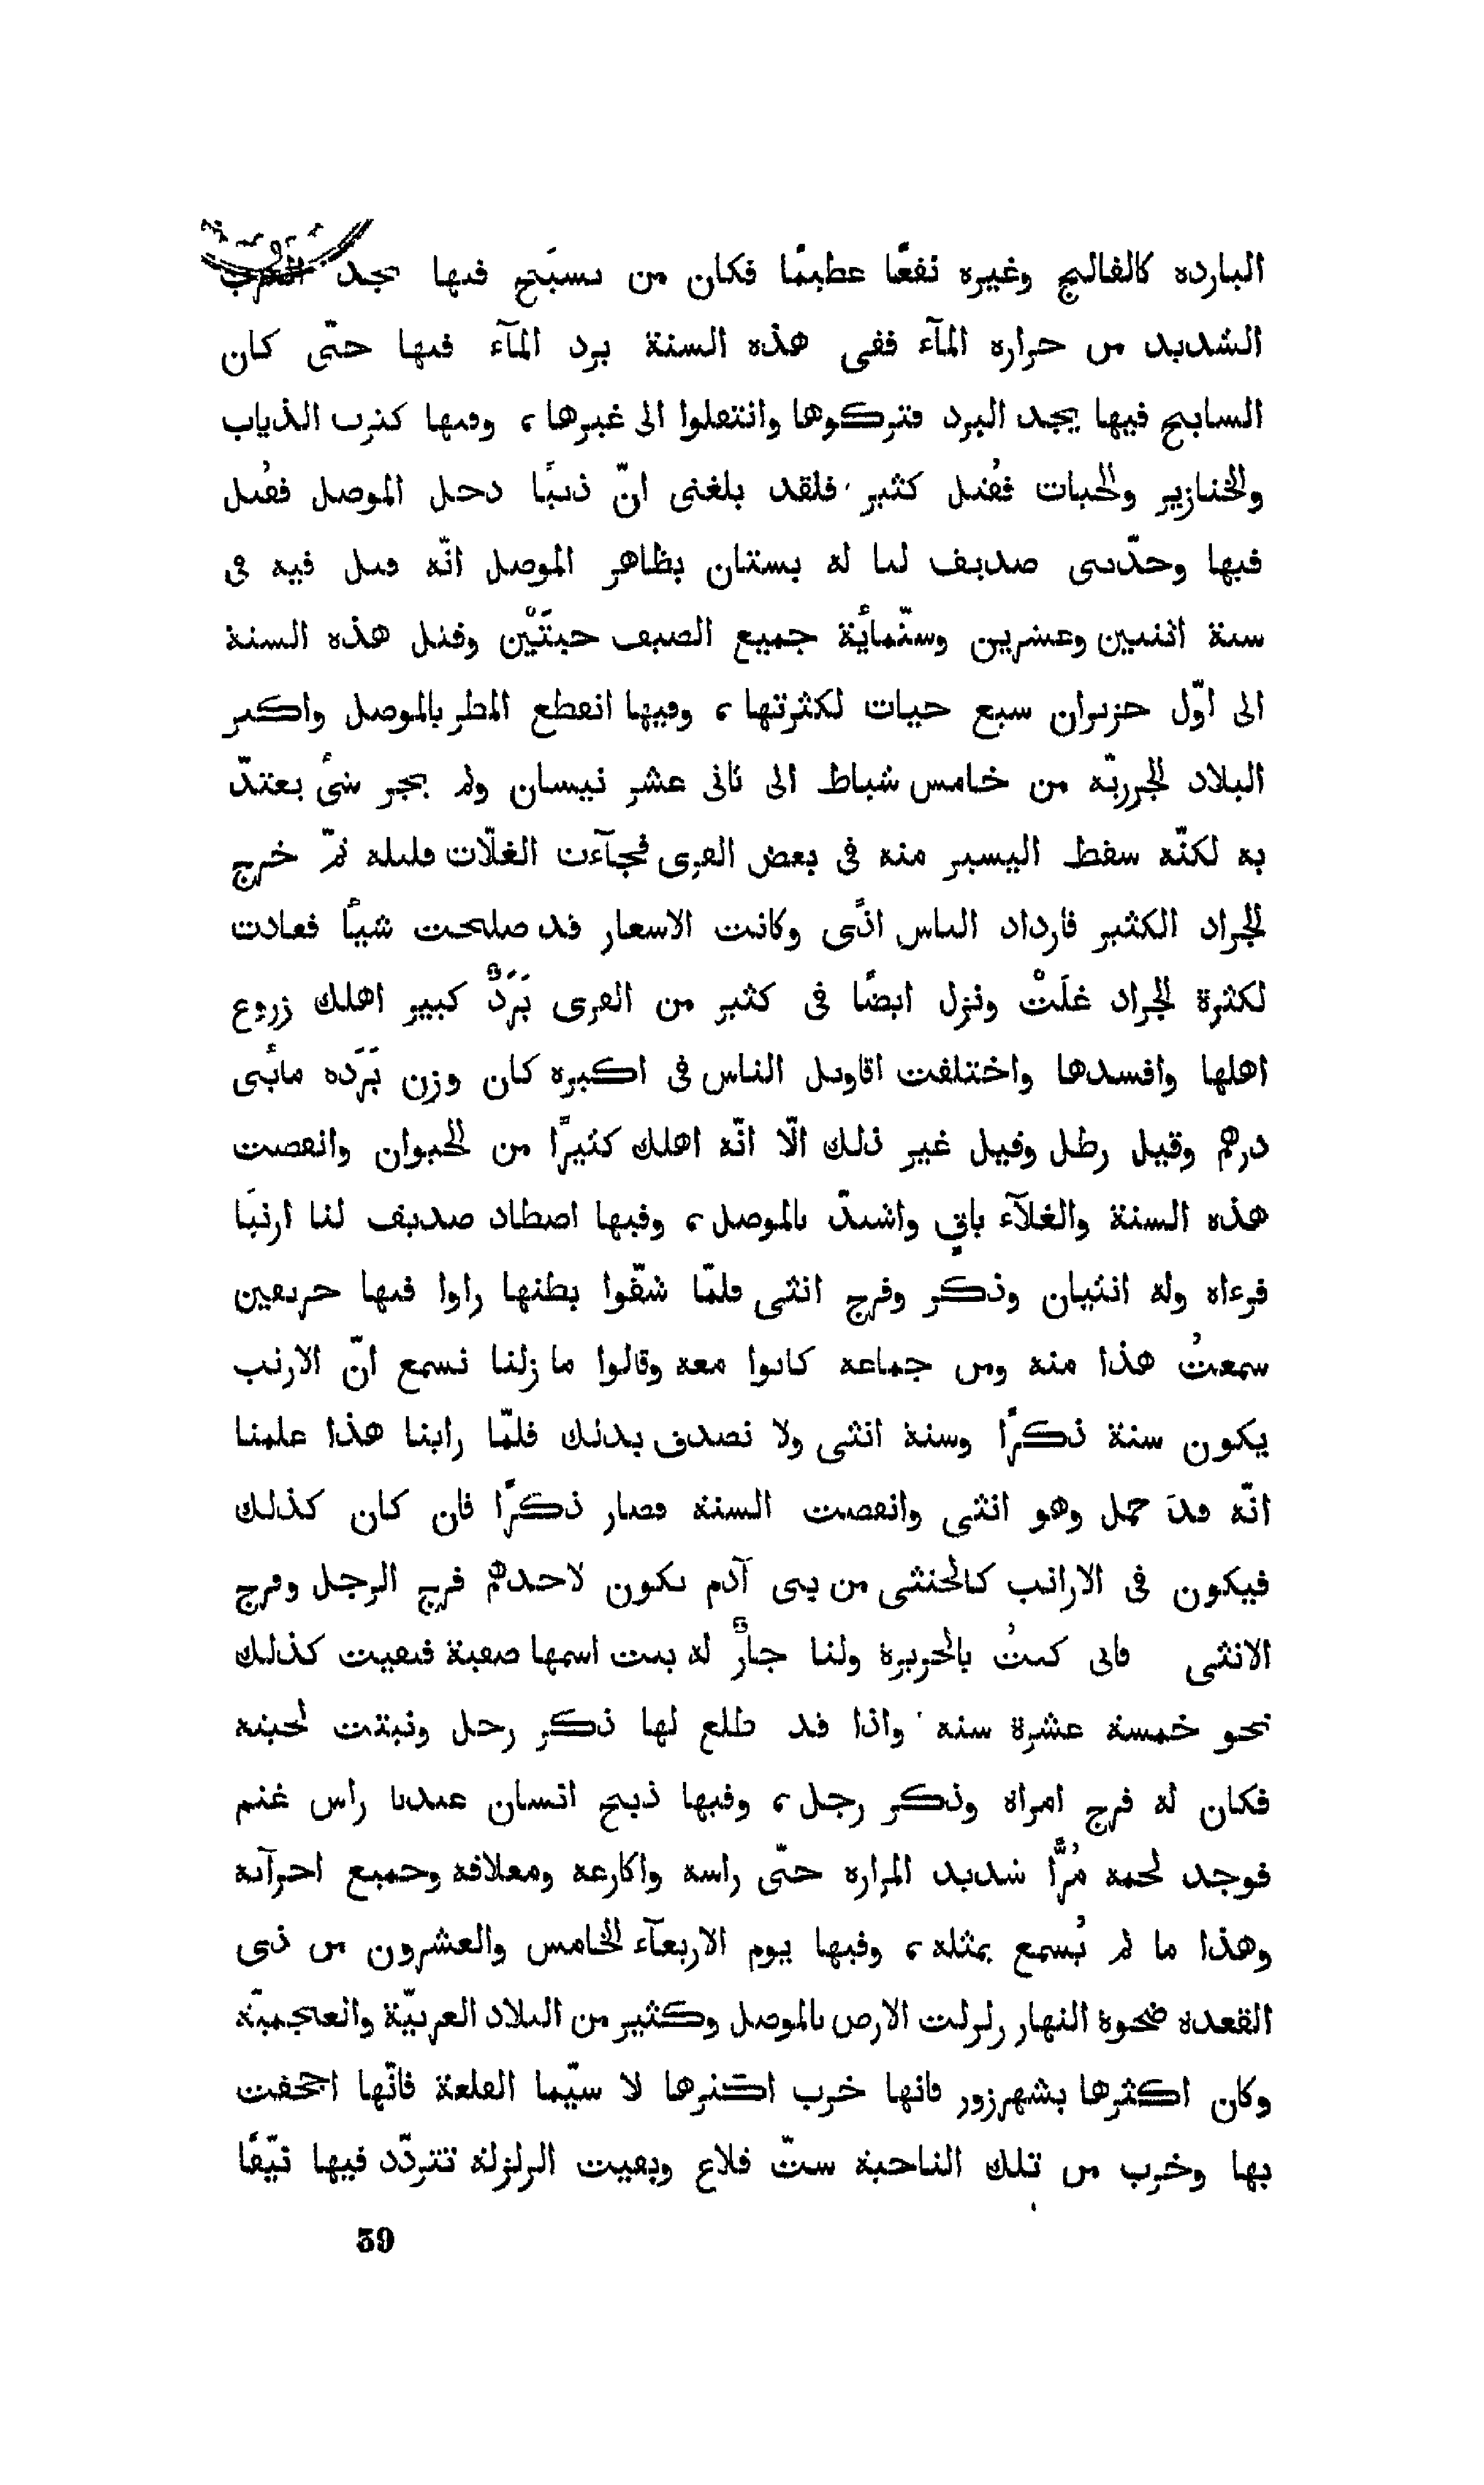 الباردة كالفالج وغيره نفعًا عظيمًا فكان من يسبَح فيها يجد الكرب
الشديد من حرارة المآء ففى هذه السنة برد المآء فيها حتّى كان
السابح فيها يجد البرد فتركوها وانتقلوا الى غيرها، وفيها كثرت الذياب
والخنازير والحيات فقُتل كثير فلقد بلغنى انّ ذئبًا دخل الموصل فقُتل
فيها وحدّثنى صديق لنا له بستان بظاهر الموصل انّه قتل فيه فى
سنة اثنين وعشرين وستّمائة جميع الصيف حيتَيْن وقتل هذه السنة
الى اوّل حزيران سبع حيات لكثرتها، وفيها انقطع المطر بالموصل واكثر
البلاد الجزريّة من خامس شباط الى ثانى عشر نيسان ولم يجر شىء يعتدّ
به لكنّه سقط اليسير منه فى بعض القرى فجآءت الغلّات قليلة ثمّ خرج
الجراد الكثير فازداد الناس اذًى وكانت الاسعار قد صلحت شيئًا فعادت
لكثرة الجراد غلَتْ ونزل ايضًا فى كثير من القرى بَرَدٌ كبير اهلك زروع
اهلها وافسدها واختلفت اقاويل الناس فى اكبره كان وزن بَرَده مائتى
درهم وقيل رطل وقيل غير ذلك الّا انّه اهلك كثيرًا من الحيوان وانقضت
هذه السنة والغلآء باقٍ واشتدّ بالموصل، وفيها اصطاد صديق لنا ارنبًا
فرءاه وله انثيان وذكر وفرج انثى فلمّا شقّوا بطنها راوا فيها حريفين
سمعتُ هذا منه ومن جماعة كانوا معه وقالوا ما زلنا نسمع انّ الارنب
يكون سنة ذكرًا وسنة انثى ولا نصدق بذلك فلمّا راينا هذا علمنا
انّه قد حمل وهو انثى وانقضت السنة فصار ذكرًا فان كان كذلك
فيكون فى الارانب كالخنثى من بنى آدم يكون لاحدهم فرج الرجل وفرج
الانثى فانى كنتُ بالجزيرة ولنا جارٌ له بنت اسمها صفية فبقيت كذلك
نحو خمسة عشرة سنة واذا قد طلع لها ذكر رجل ونبتت لحيته
فكان له فرج امراة وذكر رجل، وفيها ذبح انسان عندنا راس غنم
فوجد لحمه مُرًّا شديد المرارة حتّى راسه واكارعه ومعلاقه وجميع اجزآئه
وهذا ما لم يُسمع بمثله، وفيها يوم الاربعآء الخامس والعشرون من ذى
القعدة ضحوة النهار زلزلت الارض بالموصل وكثير من البلاد العربيّة والعجميّة
وكان اكثرها بشهرزور فانها خرب اكثرها لا سيّما القلعة فانّها اجحفت
بها وخرب من تلك الناحية ستّ قلاع وبقيت الزلزلة تتردّد فيها نيّفًا
59